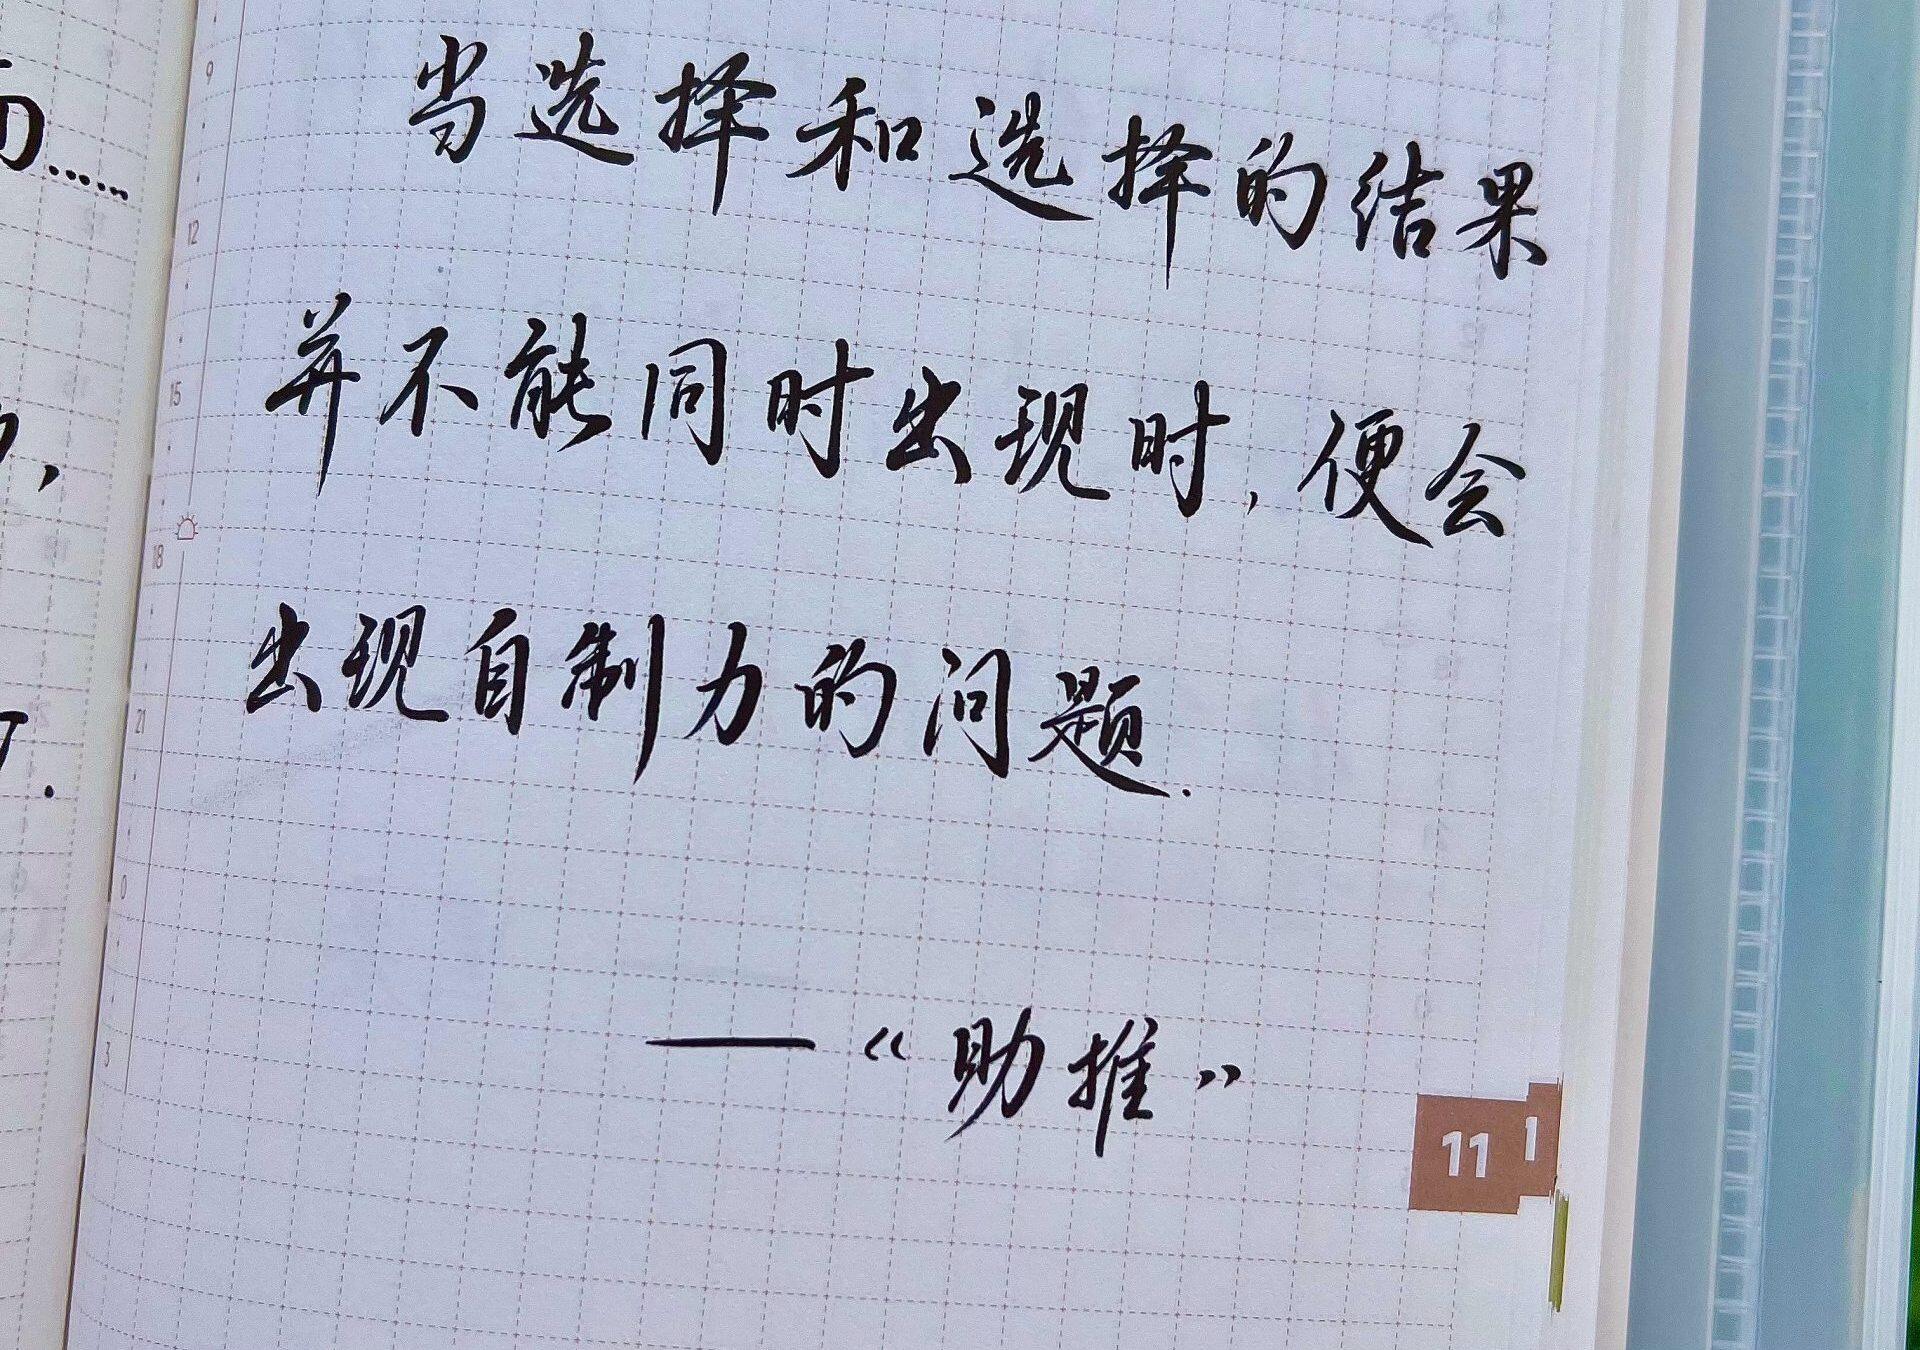 当选择和选择的结果
并不能同时出现时,便会
出现自制力的问题.
——《助推》
9
12
15
18
21
0
3
11
1